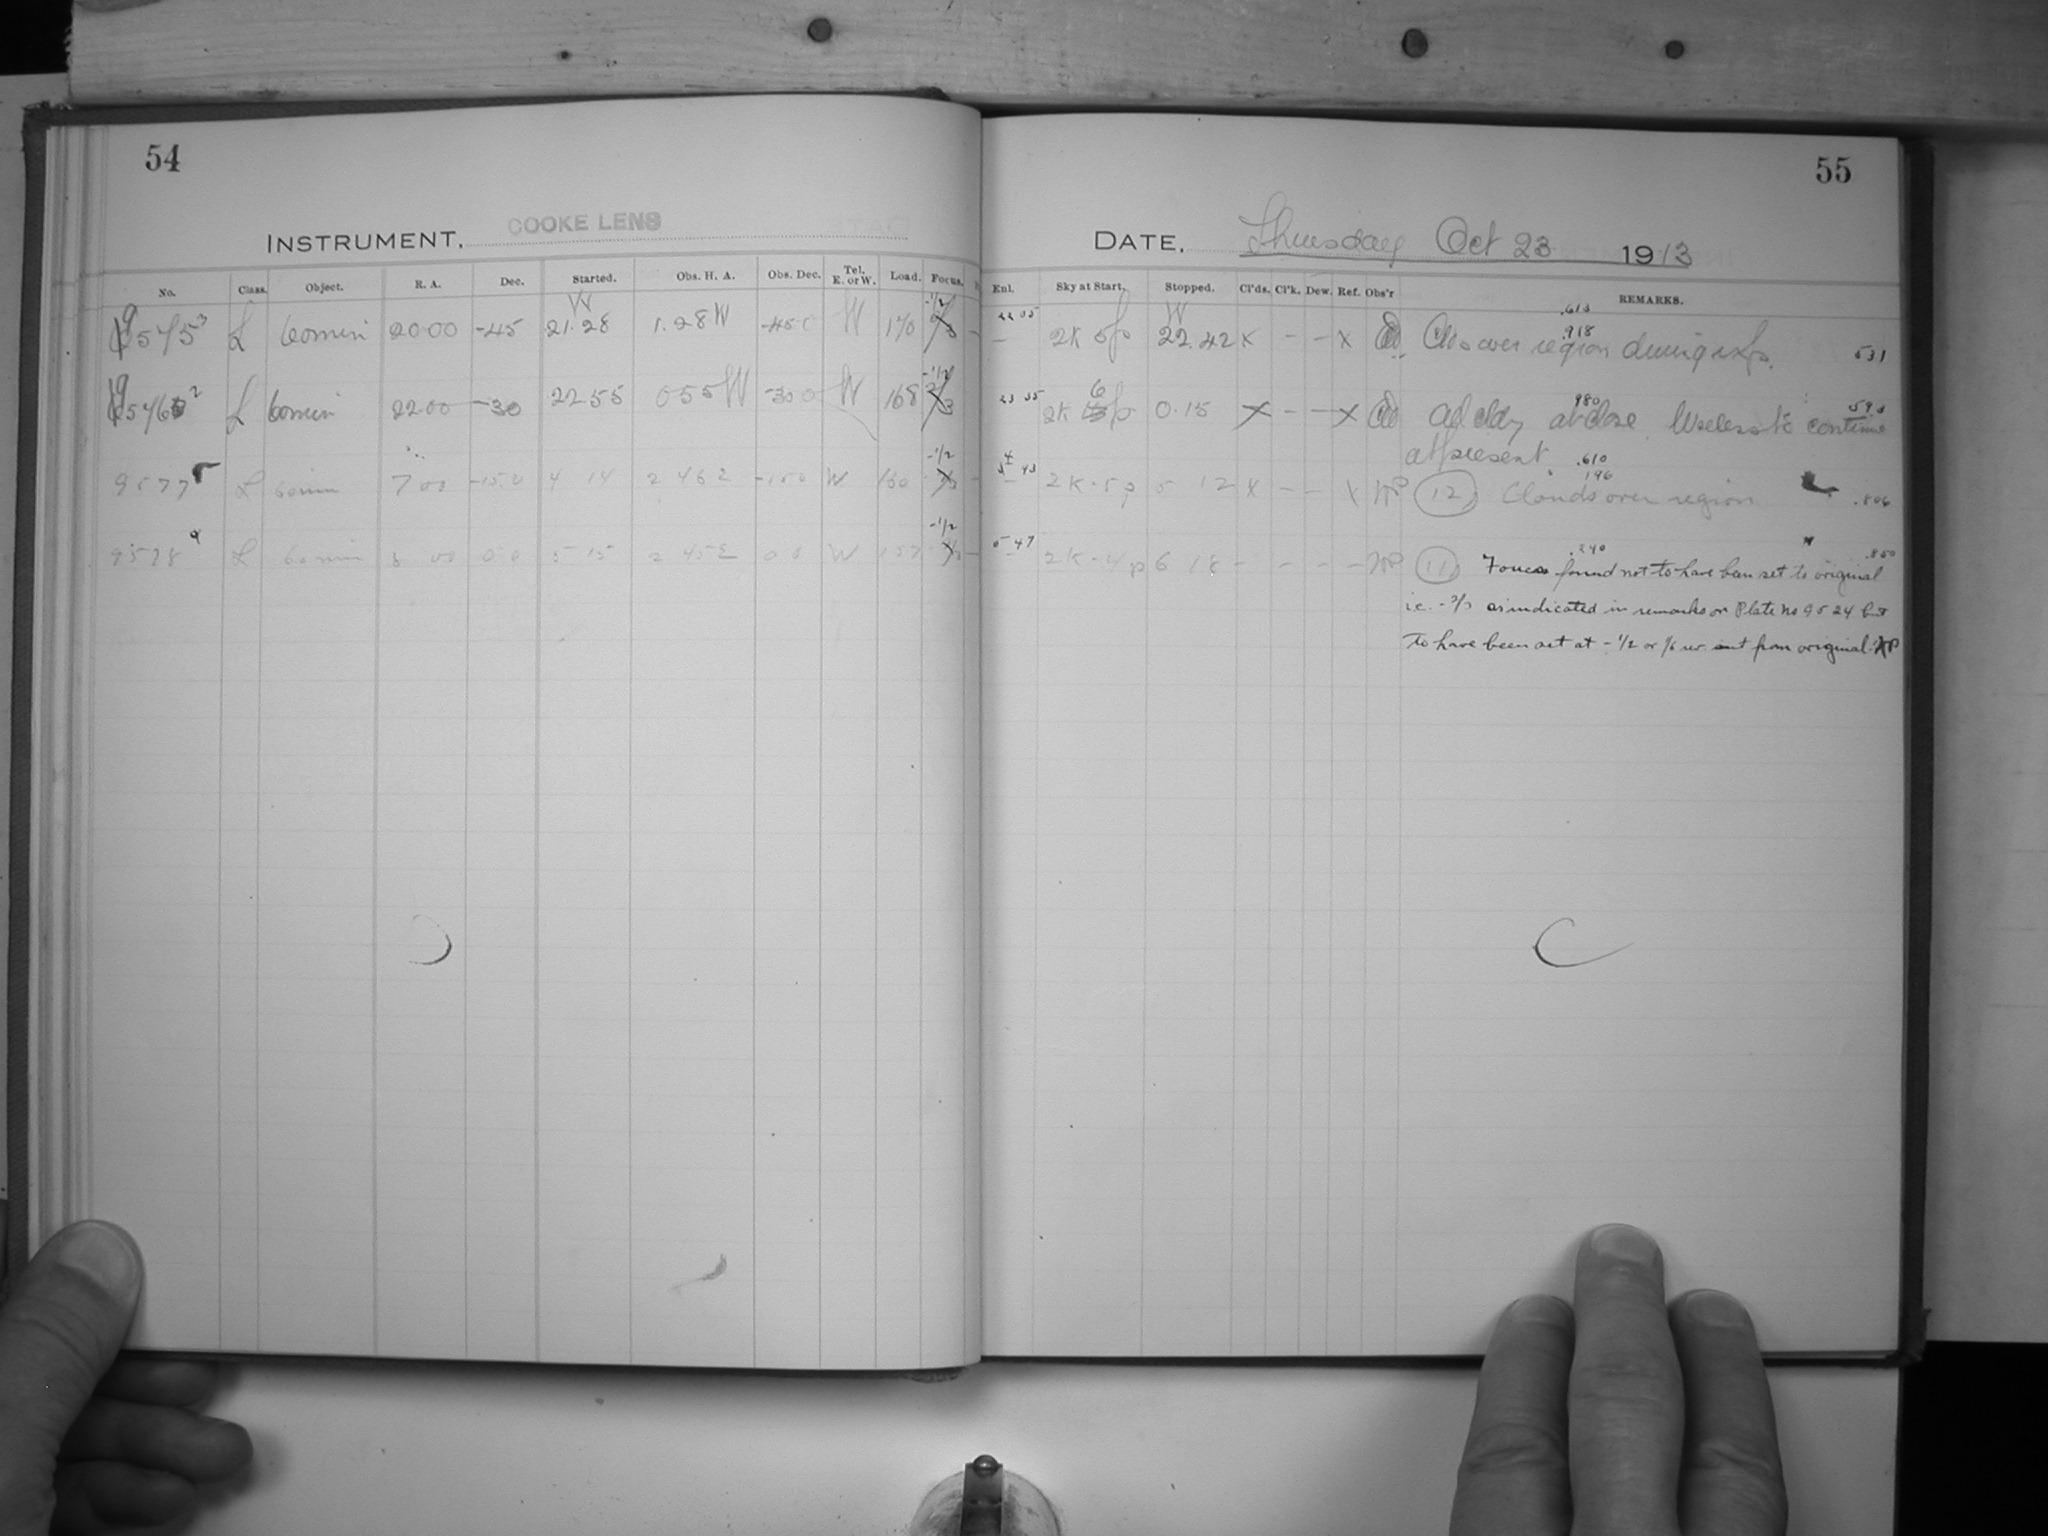 54
INSTRUMENT. COOKE LENS
No. Class. Object. R. A. Dec. Started. Obs. H. A. Obs. Dec. Tel. E. or W. Load. Focus.
L 60 min 20 00 -45 21.28 1.28 W -45 0 W 170
L 60 min 22 00 -30 22 55 0 55 W -30 0 W 168
9577 L 60 min 7 00 -15.0 4 14 2 46 E -15 0 W 160 -1/2
9578 L 60 min 8 00 0 0 5 15 2 45 E 0 0 W 157 -1/2
55
DATE. Thursday Oct 23 1913
Enl. Sky at Start. Stopped. Cl'ds. Cl'k. Dew. Ref. Obs'r REMARKS.
22 05 2K 5p 22.42 X - - X Clds over region during exp. .613 .918 531
23 35 2K 6 p 0.15 X - - X at close Useless to continue 980 593
at present .610
4 43 2K-5p 5 12 X - - X (12) Clouds over region 196 .806
5 47 2K-4p 6 18 - - - - (11) Focus found not to have been set to original .240 .850
i.e. as indicated in remarks on Plate No 9524 but
to have been set at -1/2 or 1/6 rev. out from original.